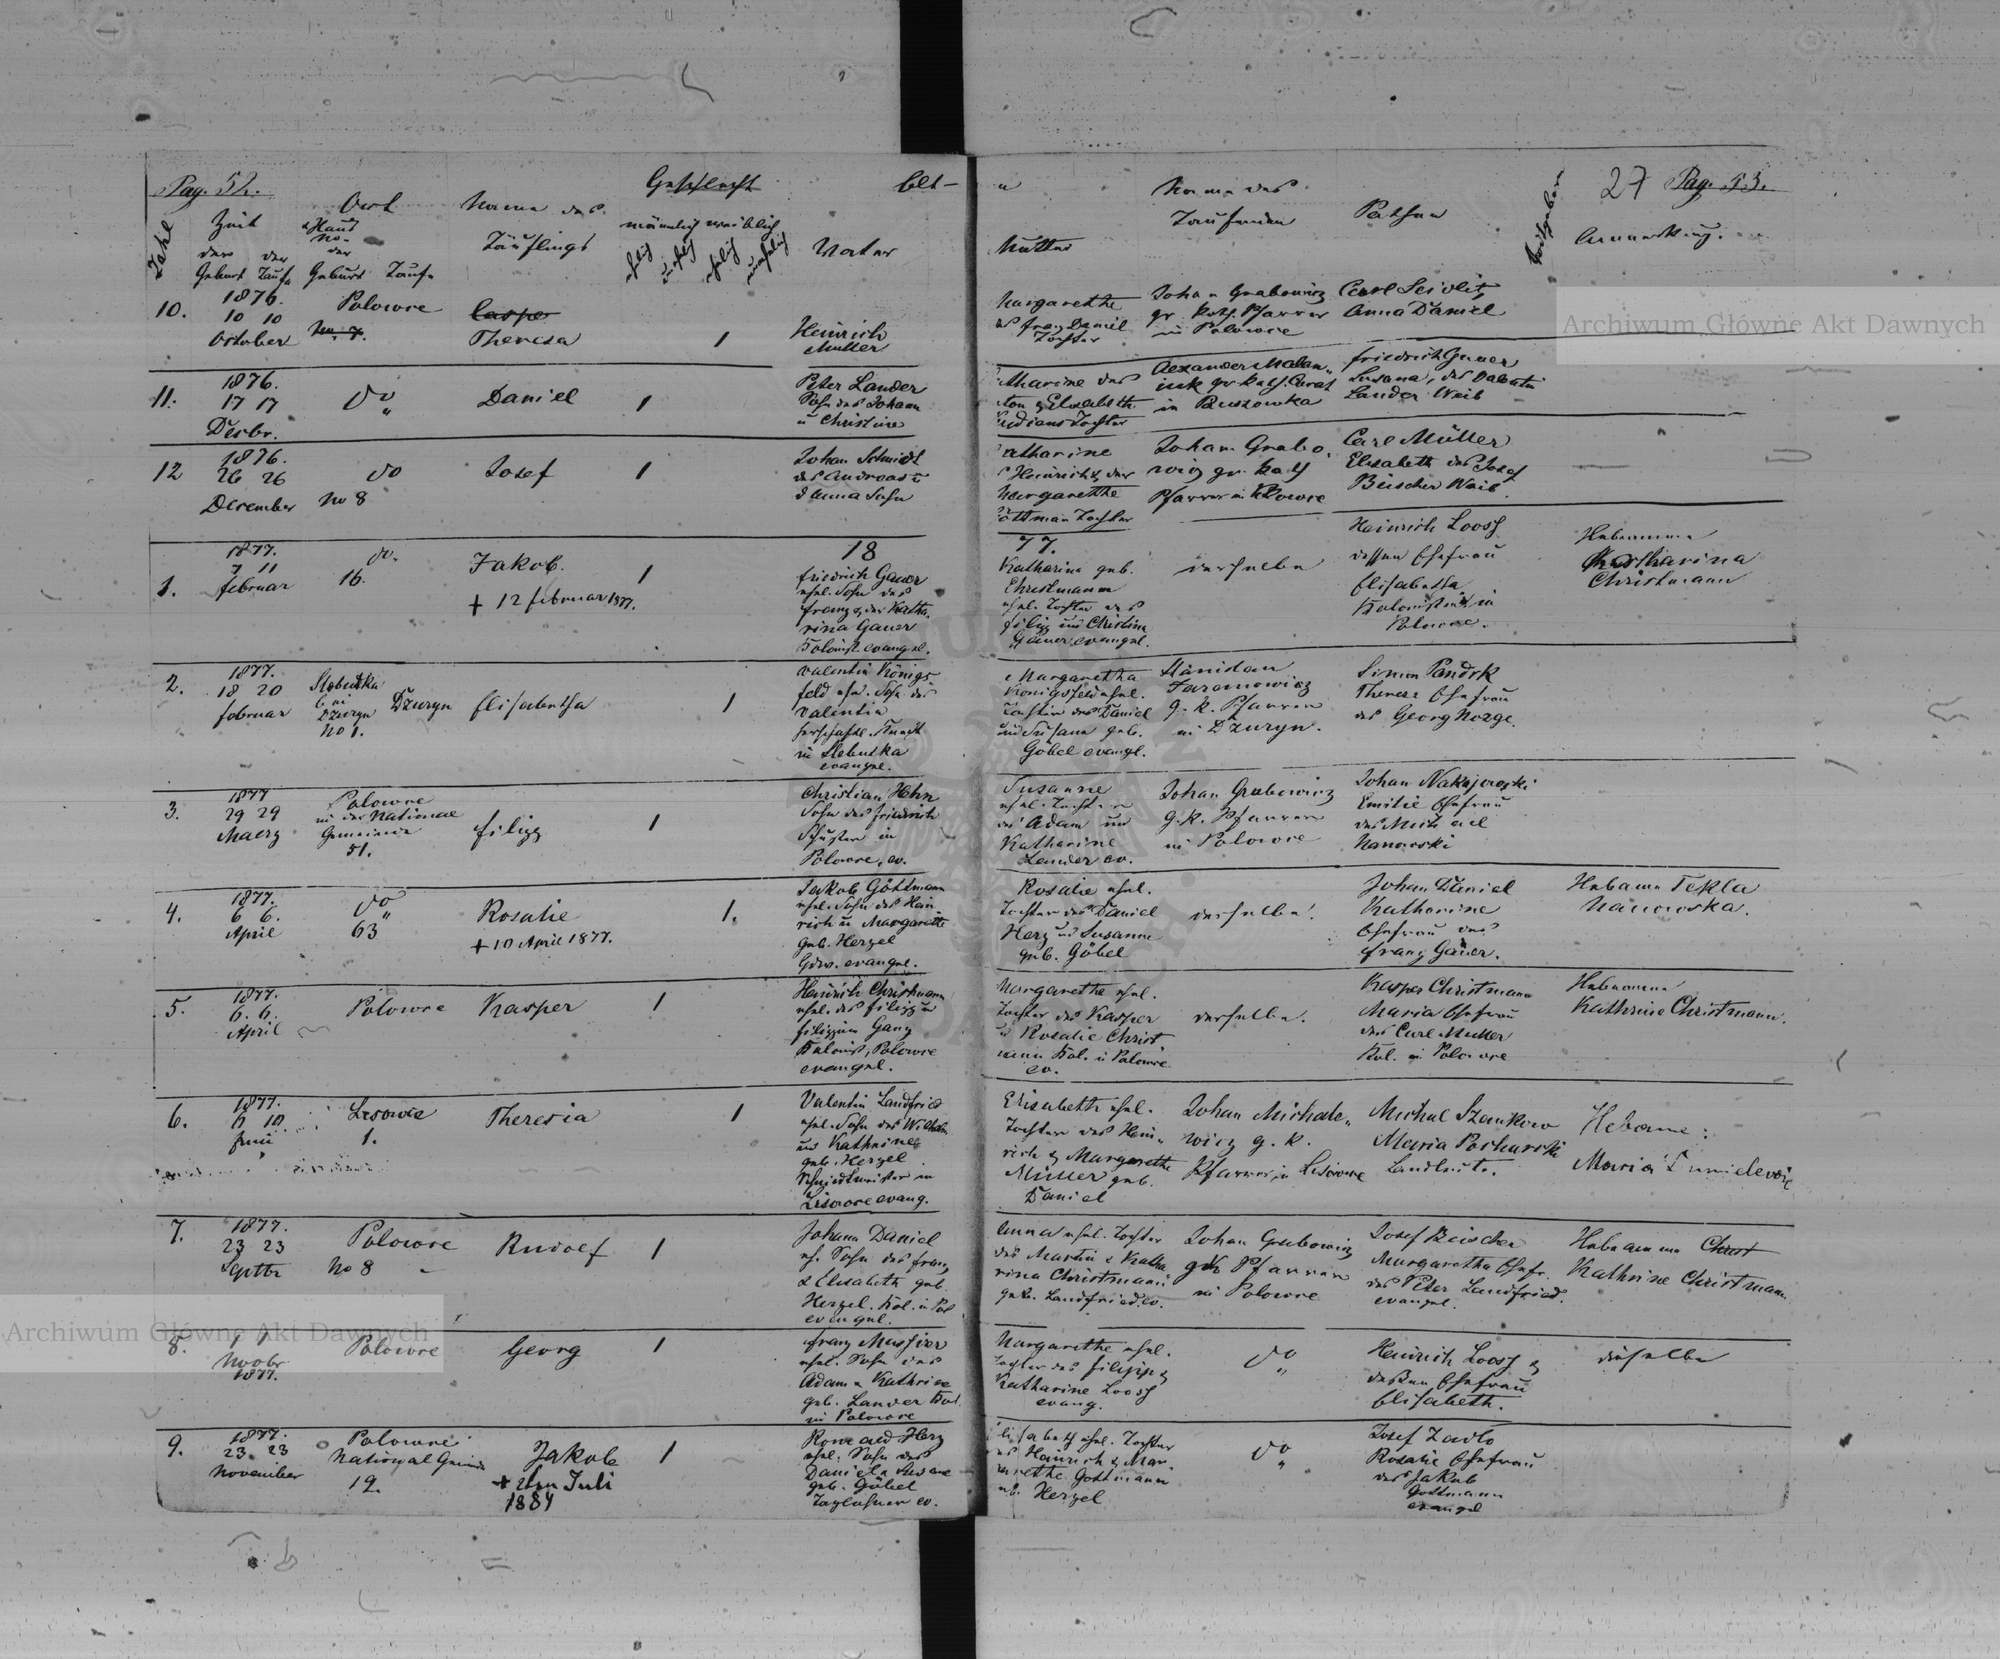 Pag. 52.
Geschlecht
Elt-
Zahl
Zeit
Ort
Name des
der der
Haus
No
der
Täuflings
männlich weiblich
ehelich
unehelich
ehelich
unehelich
Vater
Geburt Taufe
Geburt Taufe
10.
1876.
10 10
October
Polowce
No. 7.
Casper
Theresa
1
Heinrich
Muller
11.
1876.
17 17
Decbr.
do
Daniel
1
Peter Lander
Sohn des Johann
u Christine
12
1876.
26 26
December
do
No 8
Josef
1
Johan Schmidt
des Andreas u
d Anna Sohn
1.
1877.
7 11
Februar
do.
16.
Jakob.
+ 12 Februar 1877.
1
18
Friedrich Gauer
ehel. Sohn des
Franz & der Katha
rina Gauer
Kolonist. evangel.
2.
1877.
18 20
Februar
Slobudka
bei
Dzuryn
No 1.
Dzuryn
Elisabetha
1
Valentin Königs
feld ehe. Sohn des
Valentin
herschaftl. Knecht
in Slobudka
evangel.
3.
1877
29 29
Maerz
Polowce
in der National
Gemeinde
51.
Filipp
1
Christian Hehn
Sohn des Friedrich
Schuster in
Polowce, ev.
4.
1877.
6 6.
April
do
63
Rosalie
+ 10 April 1877.
1.
Jakob Göttmann
ehel. Sohn des Hein
rich u Margarethe
geb. Herzel
evangel.
5.
1877.
6. 6.
April
Polowce
Kasper
1
Heinrich Christmann
ehel. des Filipp u
Filippine Gany
Kolonist, Polowce
evangel.
6.
1877.
10
Juni
Lisowce
1.
Theresia
1
Valentin Landfried
ehel. Sohn des Wilhelm
und Kathrine
geb. Herzel
Schmiedmeister in
Lisowce evang.
7.
1877.
23 23
Septbr
Polowce
No 8
Rudolf
1
Johann Daniel
eh. Sohn des Franz
& Elisabeth geb.
Herzel. Kol. in Pol
evangel.
8.
1 1
Novbr
1877.
Polowce
Georg
1
Franz
ehel. Sohn des
Adam u Kathrine
geb. Lander Kol.
in Polowce
9.
1877.
23. 23
November
Polowce
National Gemeinde
19.
Jakob
+ 2ten Juli
1884
1
Konrad Herz
ehel. Sohn des
Daniel u Susane
geb. Göbel
Taglöhner ev.
27 Pag. 53.
Name des
Taufenden
Pathen
Mutter
Anmerkung.
Margarethe
des Franz Daniel
Tochter
Johan Grabowicz
gr. kath. Pfarrer
in Polowce
Carl Seidlitz
Anna Daniel
Alexander
gr kath.
in Buszowka
Friedrich Gauer
Susana, des Valentin
Lander Weib
Elisabeth
Tochter
atharine
Heinrich & der
Margarethe
öttman Tochter
Johan Grabo
wicz gr. kath
Pfarrer in Polowce
Carl Müller
Elisabeth des Josef
Beischer Weib
77.
Katharina geb.
Christmann
ehel. Tochter des
Filipp und Christina
Gauer evangel.
derselbe
Heinrich Loosz
dessen Ehefrau
Elisabetha
Kolonisten in
Polowce.
Hebamme
Katharina
Christmann
Margaretha
Königsfeld ehel.
Tochter des Daniel
und Susana geb.
Göbel evangel.
Stanislau
Jaramowicz
g. k. Pfarrer
in Dzuryn.
Simon Pandrk
Therese Ehefrau
des Georg Norge.
Susanne
ehel. Tochter
des Adam und
Katharine
Lander ev.
Johan Grabowicz
g. k. Pfarrer
in Polowce
Johan
Emilie Ehefrau
des Michael
Nanowski
Rosalie ehel.
Tochter des Daniel
Herz und Susanne
geb. Göbel
derselbe.
Johan Daniel
Katharine
Ehefrau des
Franz Gauer.
Hebame Tekla
Nanowska.
Margarethe ehel.
Tochter des Kasper
u Rosalie Christ
mann Kol. in Polowce
ev.
derselbe.
Kasper Christmann
Maria Ehefrau
des Carl Muller
Kol. in Polowce
Hebamme
Kathrine Christmann.
Elisabeth ehel.
Tochter des Hein
rich & Margarethe
Müller geb.
Daniel
Johan Michale
wicz g. k.
Pfarrer in Lisowce
Michal Szankow
Maria
Landleute.
Hebame:
Maria
Anna ehel. Tochter
des Martin & Katha
rina Christmann
geb. Landfried. ev.
Johan Grabowicz
gk Pfarrer
in Polowce
Josef Beischer
Margaretha Ehefr.
des Peter Landfried.
evangel.
Hebamme Christ
Kathrine Christmann.
Margarethe ehel.
Tochter des Filipp &
Katharine Loosz
evang.
do
Heinrich Loosz &
dessen Ehefrau
Elisabeth.
dieselbe
lisabeth ehel. Tochter
des Heinrich & Mar
garethe Gottmann
geb. Herzel
do
Josef Zavlo
Rosalie Ehefrau
des Jakob
Gottmann
evangel
Archiwum Główne Akt Dawnych
Archiwum Główne Akt Dawnych